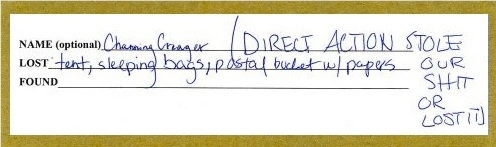 NAME (optional) Channing Creager / (DIRECT ACTION STOLE
LOST tent, sleeping bags, postal bucket w/ papers OUR
FOUND SHIT
OR
LOST IT)